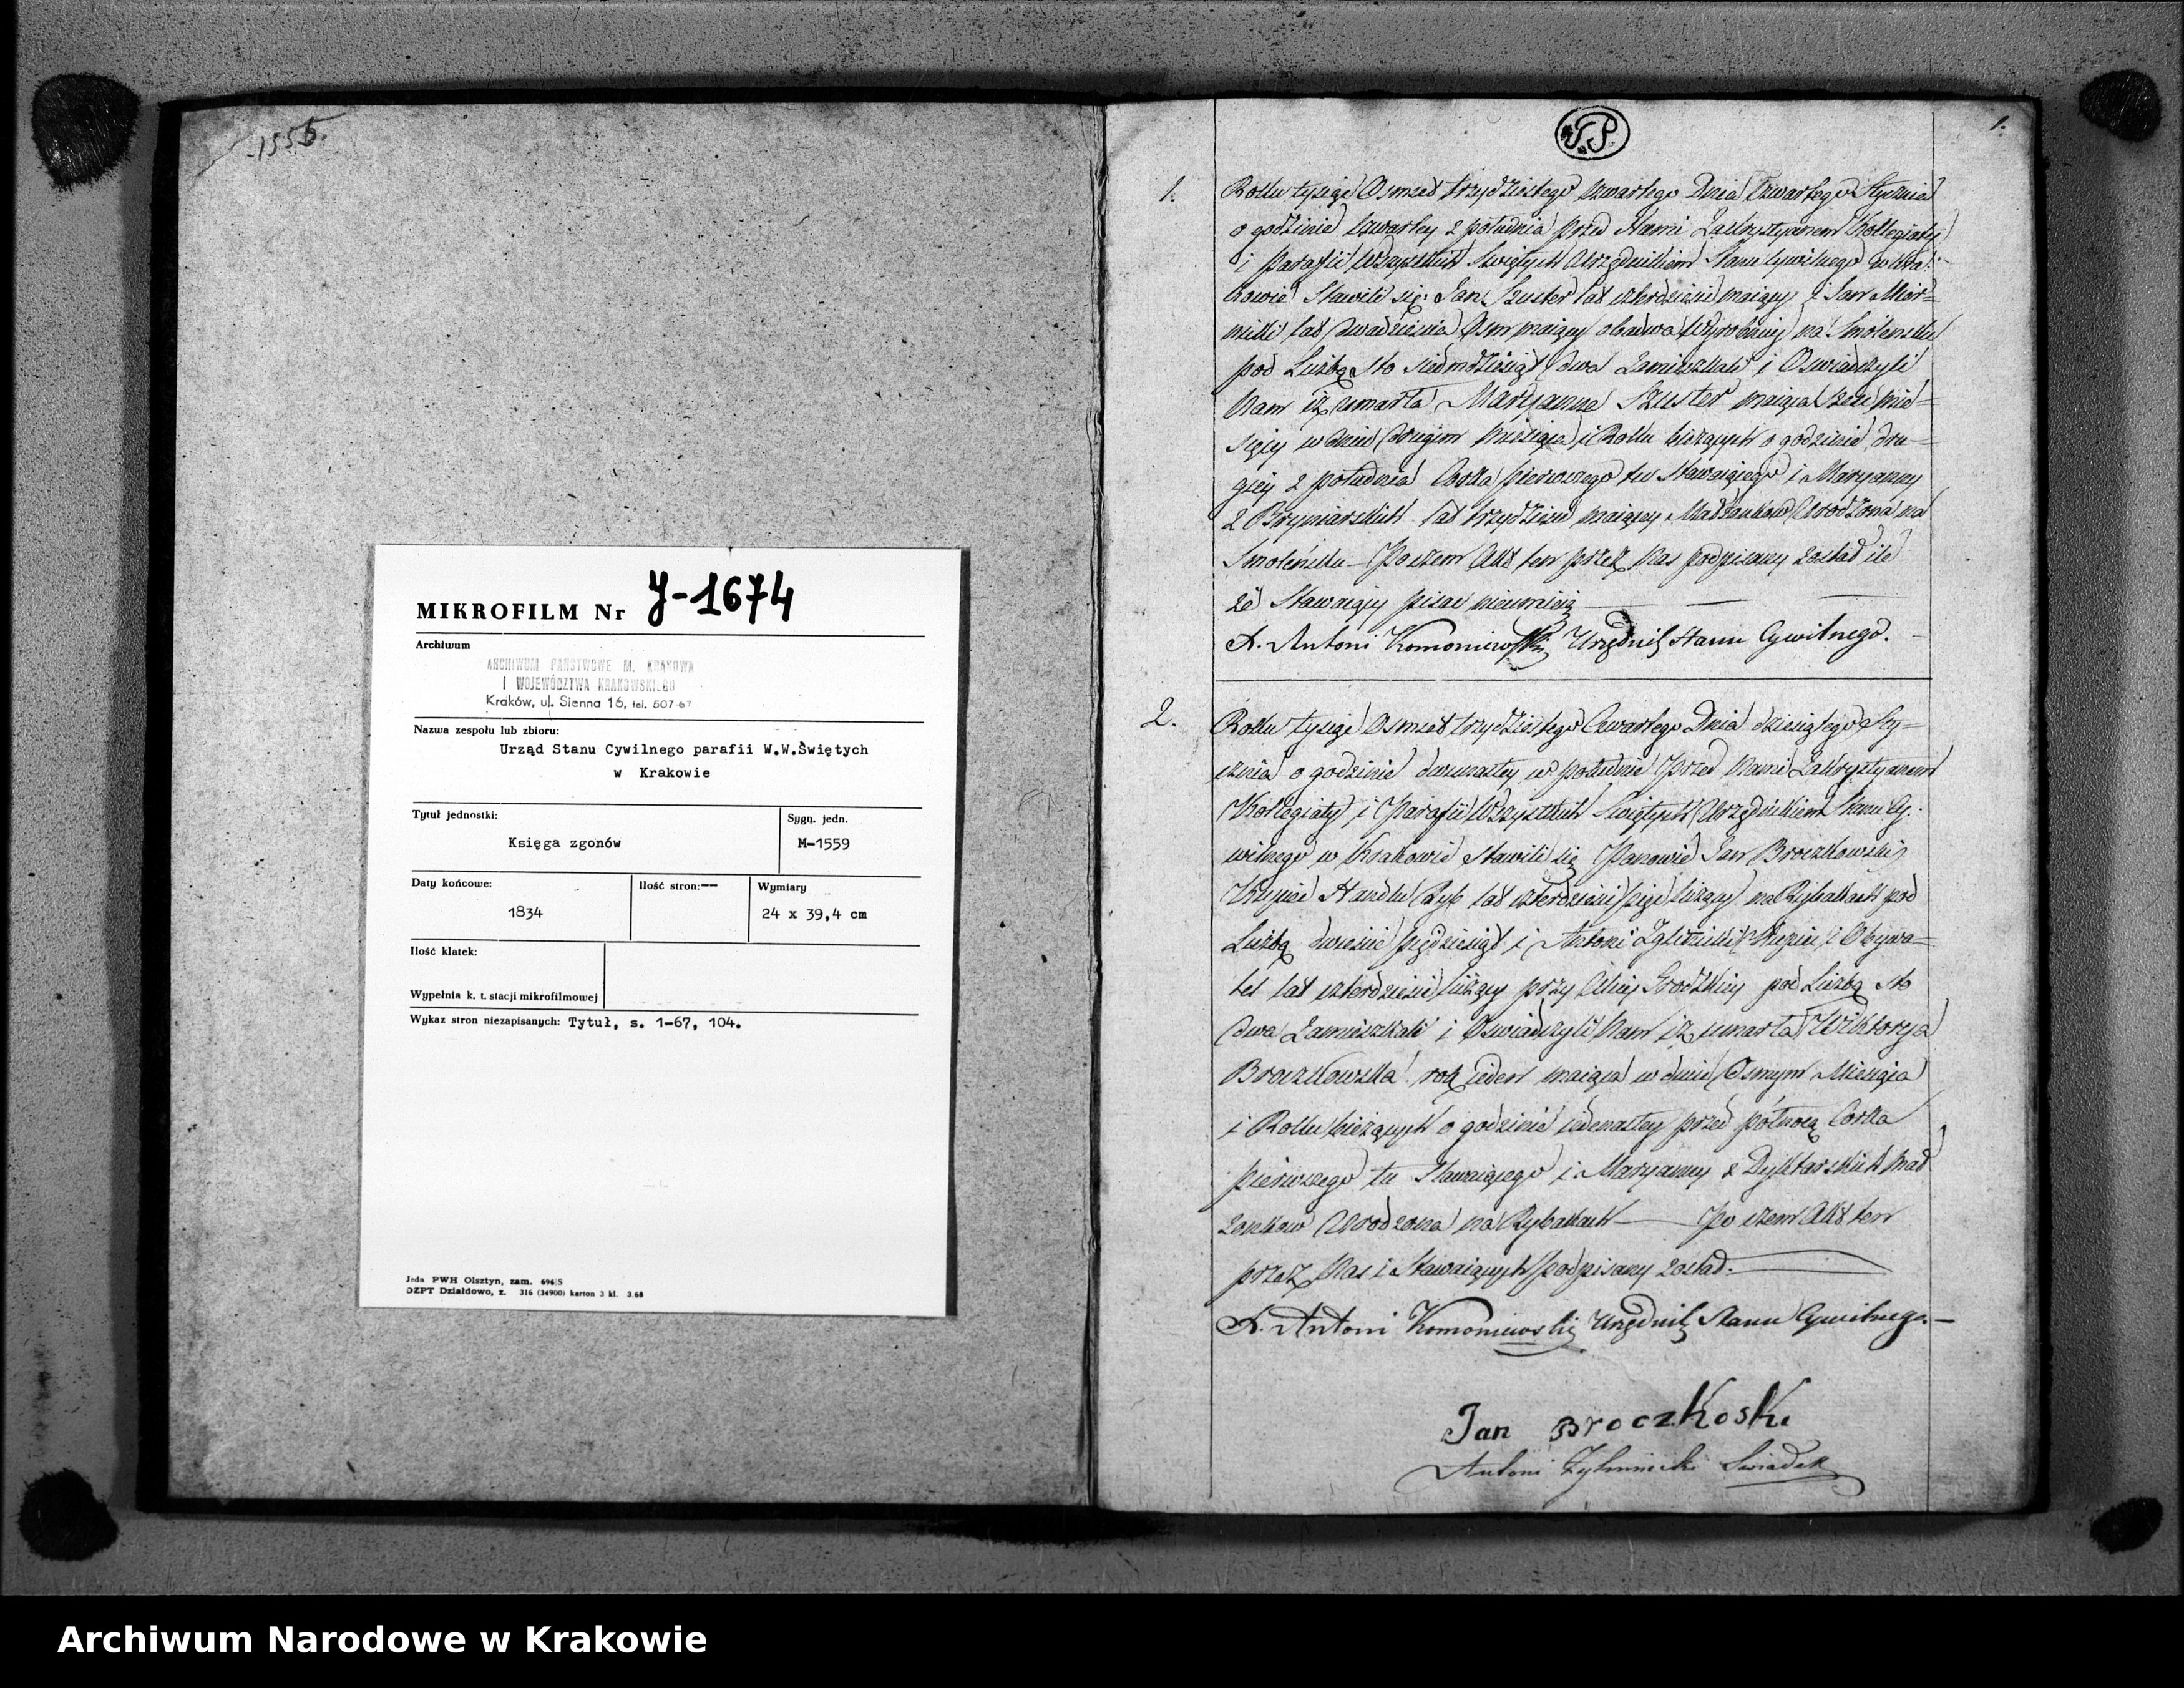 1555.
MIKROFILM Nr J-1674
Archiwum
ARCHIWUM PAŃSTWOWE M. KRAKOWA
I WOJEWÓDZTWA KRAKOWSKIEGO
Kraków, ul. Sienna 16, tel. 507-67
Nazwa zespołu lub zbioru:
Urząd Stanu Cywilnego parafii W.W.Świętych
w Krakowie
Tytuł jednostki:
Księga zgonów
Sygn. jedn.
M-1559
Daty końcowe:
1834
Ilość stron:--
Wymiary
24 x 39,4 cm
Ilość klatek:
Wypełnia k. t. stacji mikrofilmowej
Wykaz stron niezapisanych: Tytuł, s. 1-67, 104.
Jedn PWH Olsztyn, zam. 696/S
DZPT Działdowo, z. 316 (34900) karton 3 kl. 3.68
1.
1. Roku tysiąc Osmset trzydziestego czwartego Dnia Czwartego Stycznia
o godzinie czwartey z południa przed Nami Zakrystyanem Kollegiaty
i Parafii Wszystkich Swiętych Urzędnikiem Stanu Cywilnego w Kra-
kowie Stawili się Jan Szuster lat czterdzieści maiący i Jan
lat dwadzieścia Osm maiący obadwa Wyrobnicy na Smoleńsku
pod Liczbą sto siedmdziesiąt dwa Zamieszkali i Oswiadczyli
Nam iż umarła Maryanna Szuster maiąca sześć mie-
sięcy w dniu drugim Miesiąca i Roku bieżących o godzinie dru-
giey z południa Corka pierwszego tu Stawaiącego i Maryanny
z Bryniarskich lat trzydzieści maiącey Małżonków Urodzona na
Smoleńsku - Poczem Akt ten przez Nas podpisany został ile
że Stawaiący pisać nieumieią
X. Antoni Komoniewski Urzędnik Stanu Cywilnego.
2. Roku tysiąc Osmset trzydziestego Czwartego Dnia dziesiątego Sty-
cznia o godzinie dwunastey w południe Przed Nami Zakrystyanem
Kollegiaty i Parafii Wszystkich Swiętych Urzędnikiem Stanu Cy-
wilnego w Krakowie Stawili się Panowie Jan Broczkowski
Kupiec Handlu Ryb lat czterdzieści pięć liczący na Rybakach pod
Liczbą dwieście pięćdziesiąt i Antoni Kupiec i Obywa-
tel lat czterdzieści liczący przy Ulicy Grodzkiey pod Liczbą sto
dwa Zamieszkali i Oswiadczyli Nam iż umarła Wiktorya
Broczkowska rok ieden maiąca w dniu Osmym Miesiąca
i Roku bieżących o godzinie iedenastey przed północą Corka
pierwszego tu Stawaiącego i Maryanny z Dyktarskich Mał
żonków Urodzona na Rybakach - Po czem Akt ten
przez Nas i Stawaiących podpisany został.
X. Antoni Komoniewski Urzędnik Stanu Cywilnego.-
Jan Broczkoski
Antoni Swiadek
Archiwum Narodowe w Krakowie